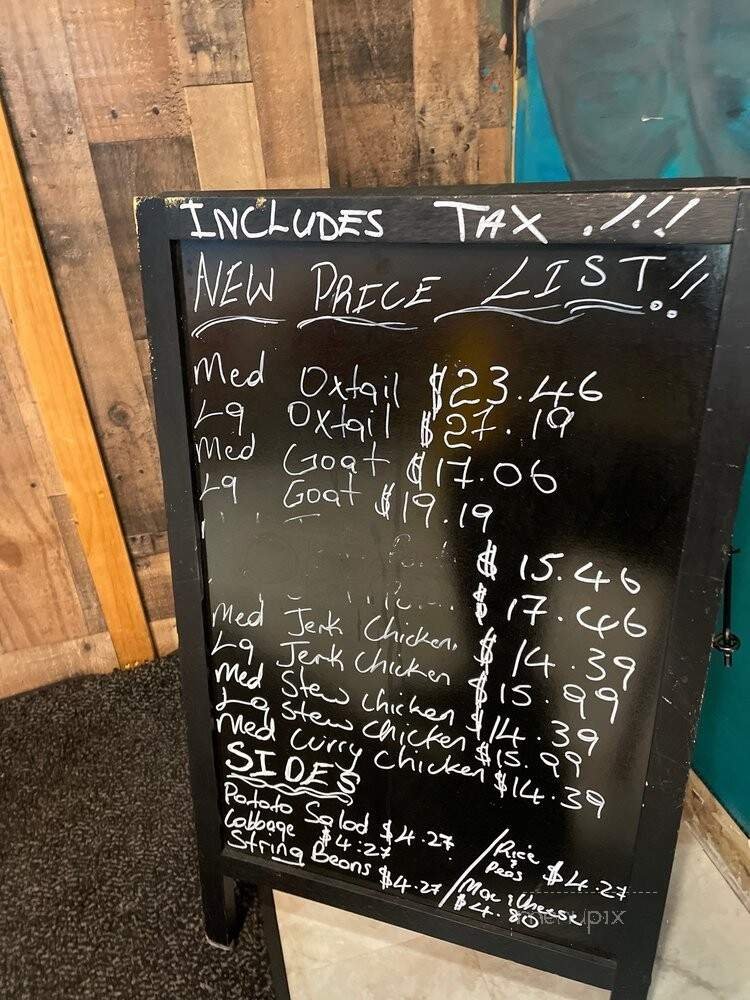 INCLUDES TAX .!.!!
NEW PRICE LIST..!!
Med Oxtail $23.46
Lg Oxtail $27.19
Med Goat $17.06
Lg Goat $19.19
$15.46
$17.46
Med Jerk Chicken. $14.39
Lg Jerk Chicken $15.99
Med Stew Chicken $14.39
Lg Stew Chicken $15.99
Med Curry Chicken $14.39
SIDES
Potato Salad $4.27
Cabbage $4.27
String Beans $4.27
Rice & Peas $4.27
Mac & Cheese
$4.80
menupix